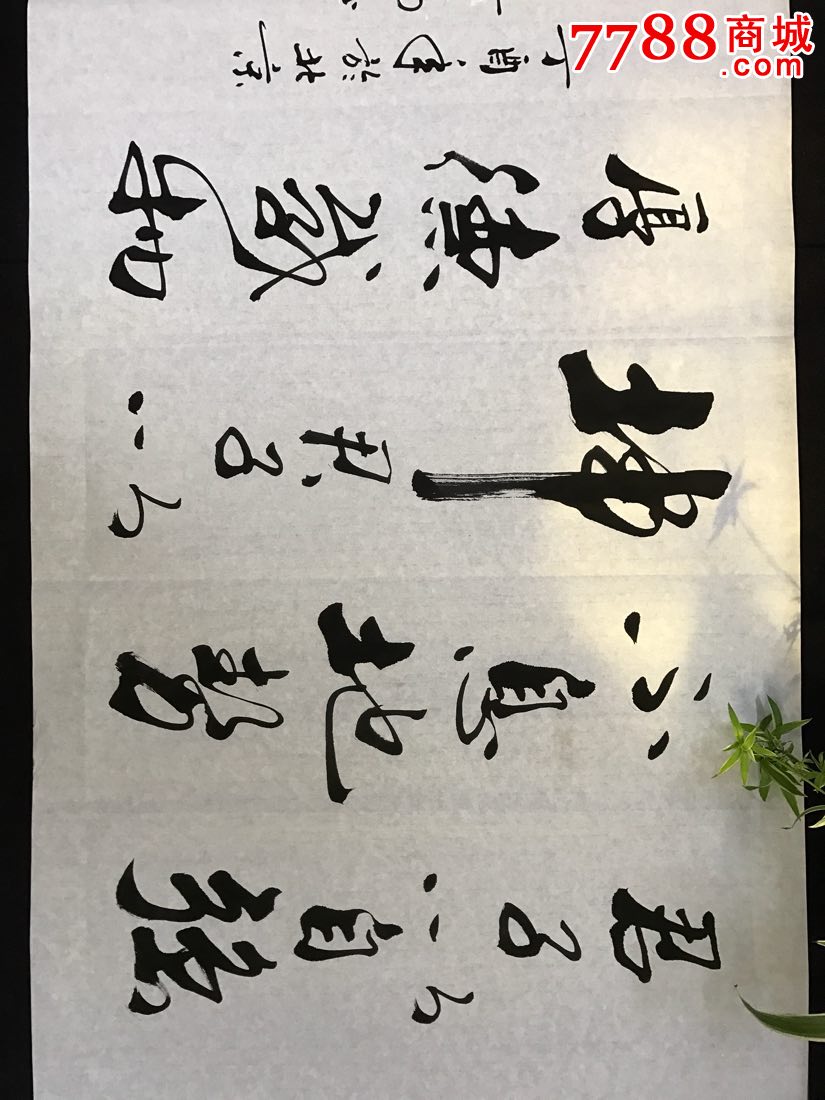 君子以自強
不息地勢
坤君子以
厚德載物
丁酉於北京
7788商城
.com